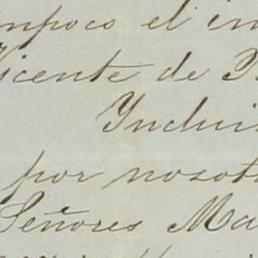 mpoco el in
icente de P
Ynclui
por nosot
Señores Ma